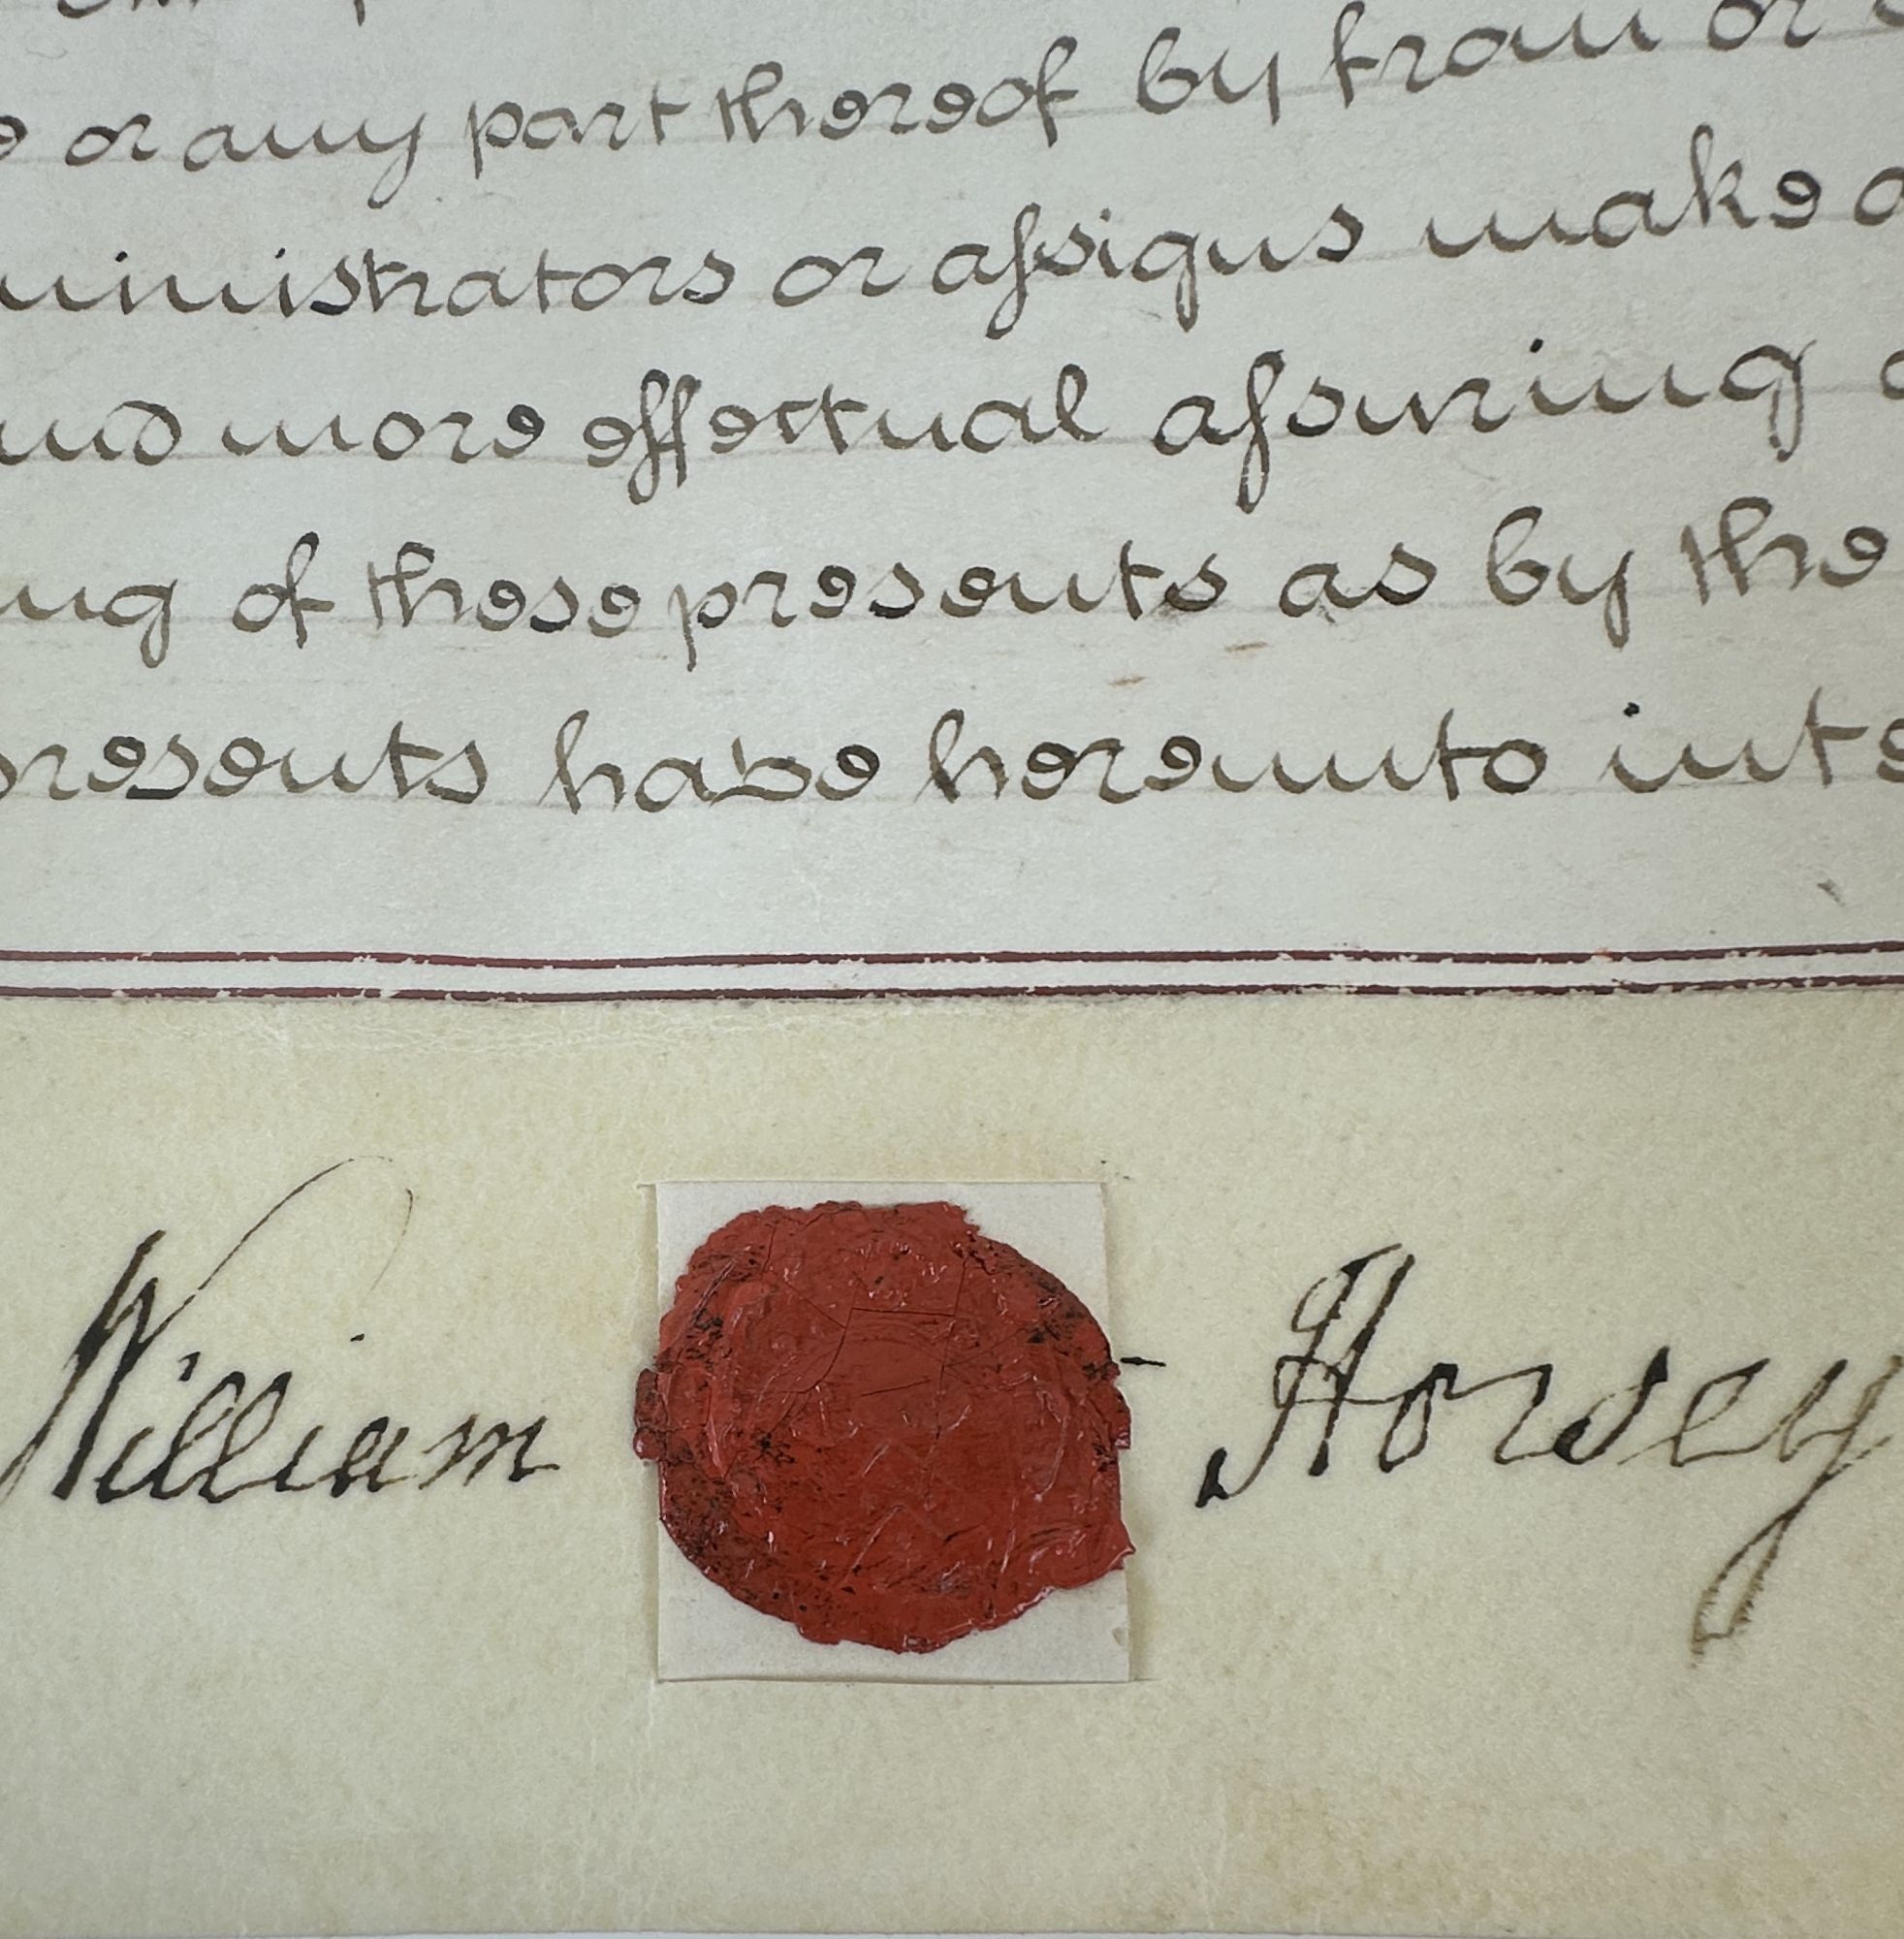 or any part thereof by from or
ministrators or assigns make
and more effectual assuring
ing of these presents as by the
presents have hereunto inte
William Horsey